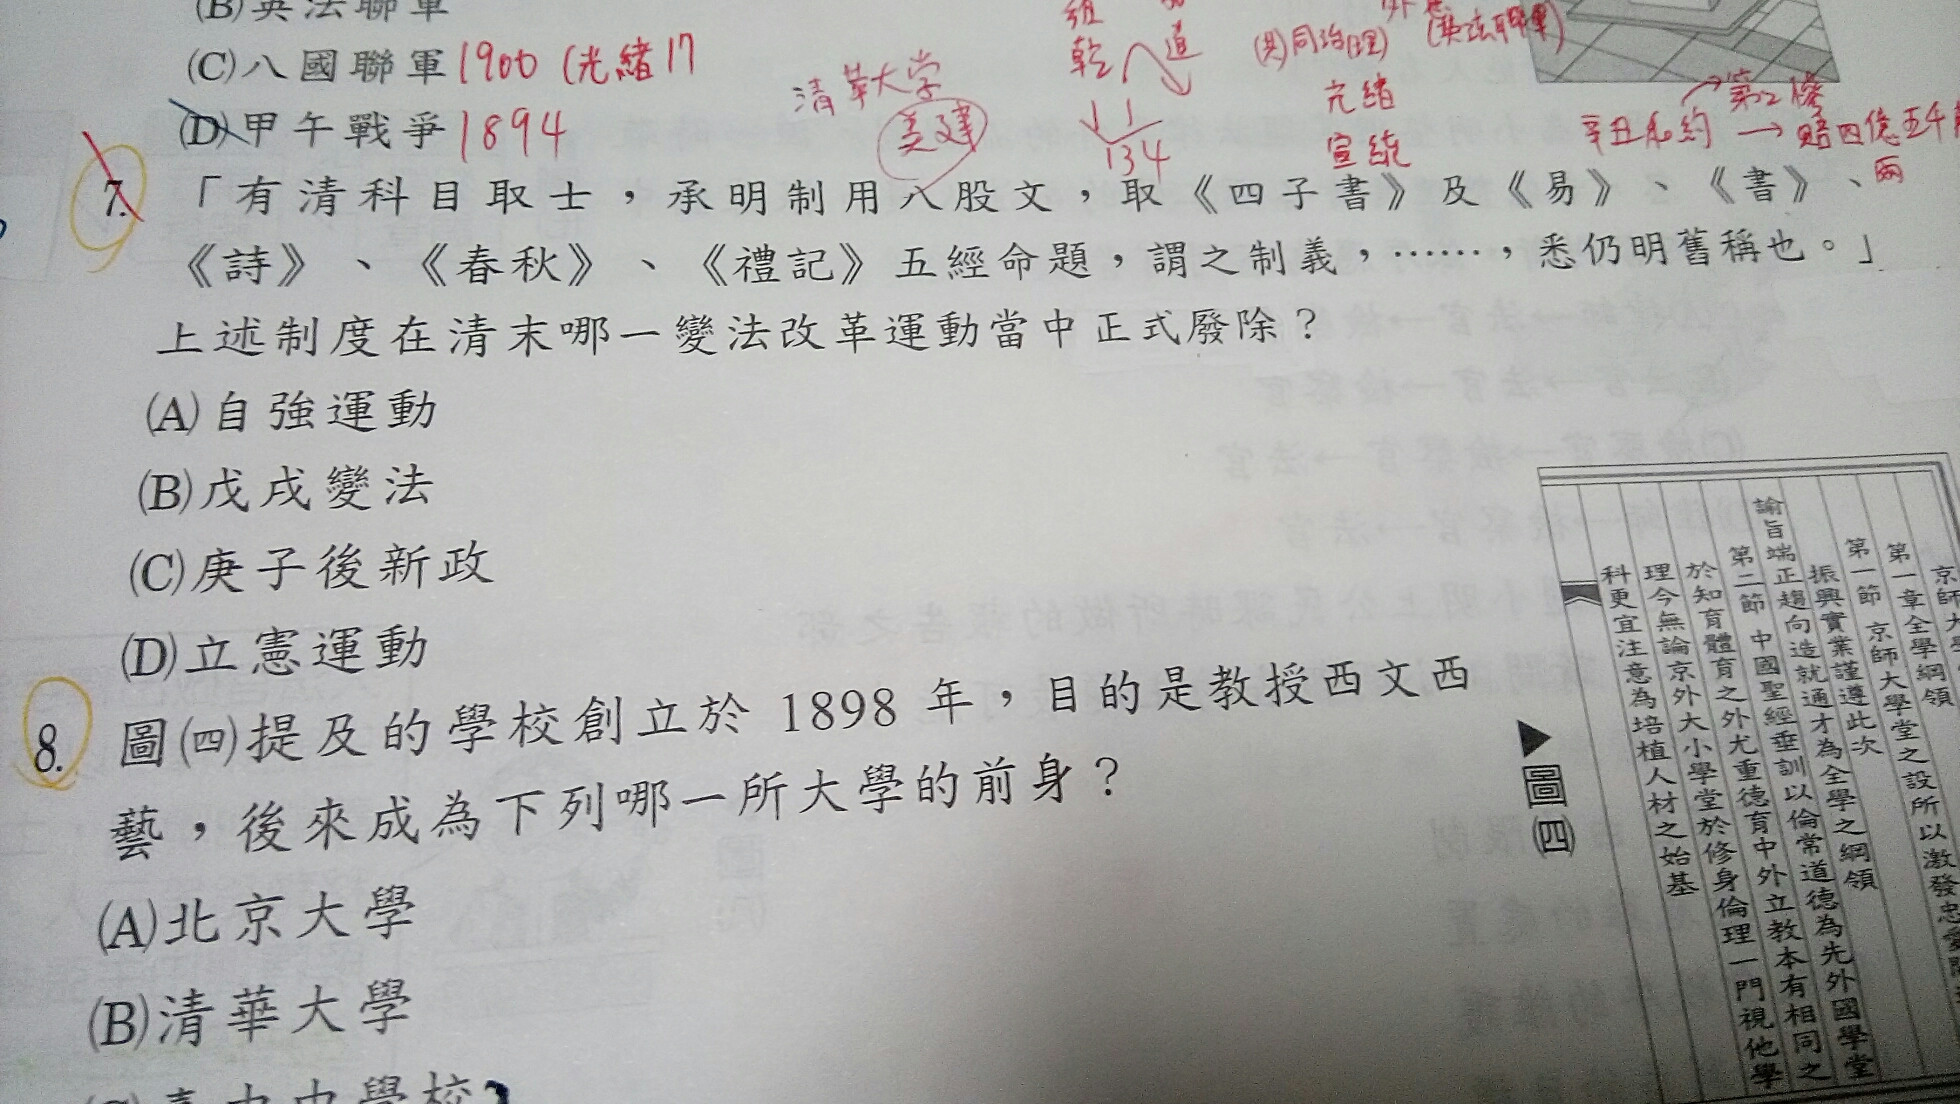 (B)英法聯軍
(C)八國聯軍1900 (光緒17
(D)甲午戰爭1894
清華大学
美建
乾 道
1 1
134
(共)同治(理)
(英法聯軍)
光緒
宣統
辛丑和約 → 賠四億五千
兩
7.「有清科目取士,承明制用八股文,取《四子書》及《易》、《書》、
《詩》、《春秋》、《禮記》五經命題,謂之制義,……,悉仍明舊稱也。」
上述制度在清末哪一變法改革運動當中正式廢除?
(A)自強運動
(B)戊戌變法
(C)庚子後新政
(D)立憲運動
8.圖(四)提及的學校創立於 1898 年,目的是教授西文西
藝,後來成為下列哪一所大學的前身?
(A)北京大學
(B)清華大學
▶圖(四)
京師大學
第一章全學綱領
第一節 京師大學堂之設所以激發忠愛
振興實業謹遵此次
諭旨端正趨向造就通才為全學之綱領
第二節 中國聖經垂訓以倫常道德為先外國學堂
於知育體育之外尤重德育中外立教本有相同之
理今無論京外大小學堂於修身倫理一門視他學
科更宜注意為培植人材之始基